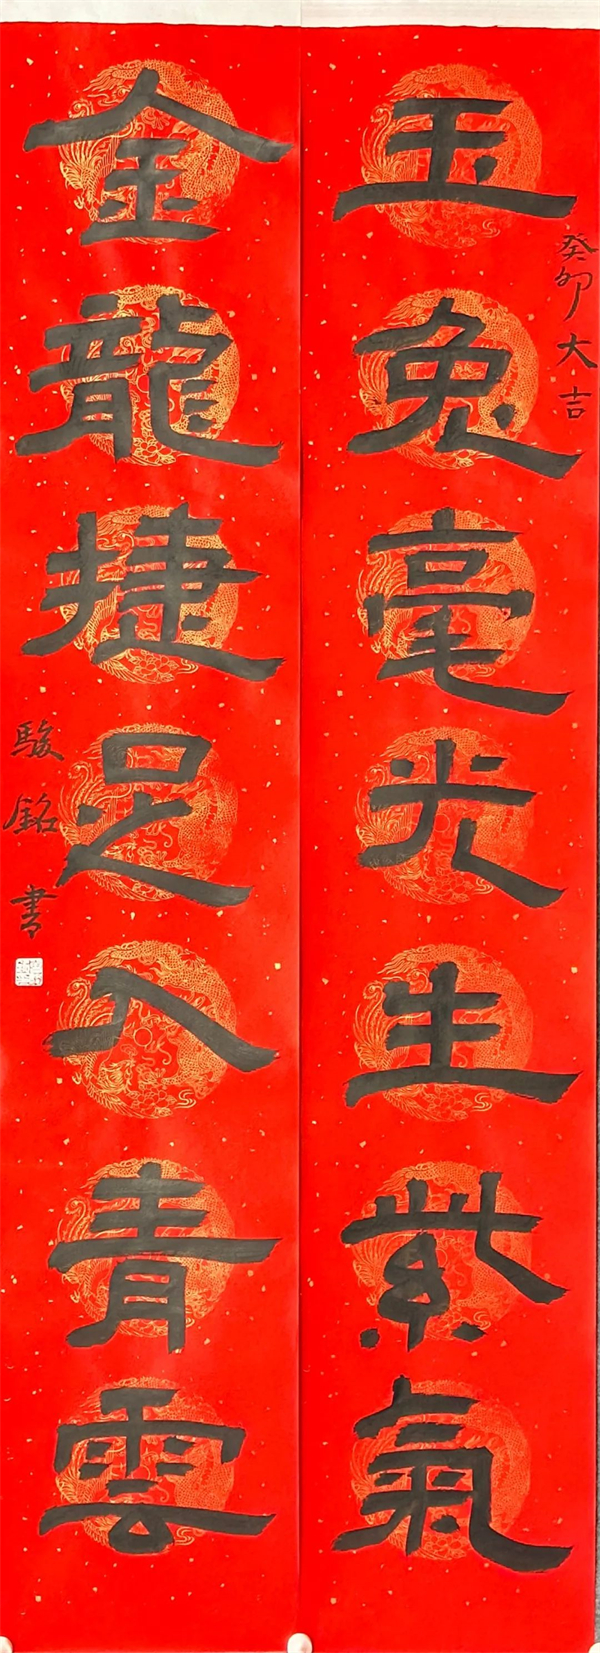 玉兔毫光生紫氣
癸卯大吉
金龍捷足入青雲
駿銘書